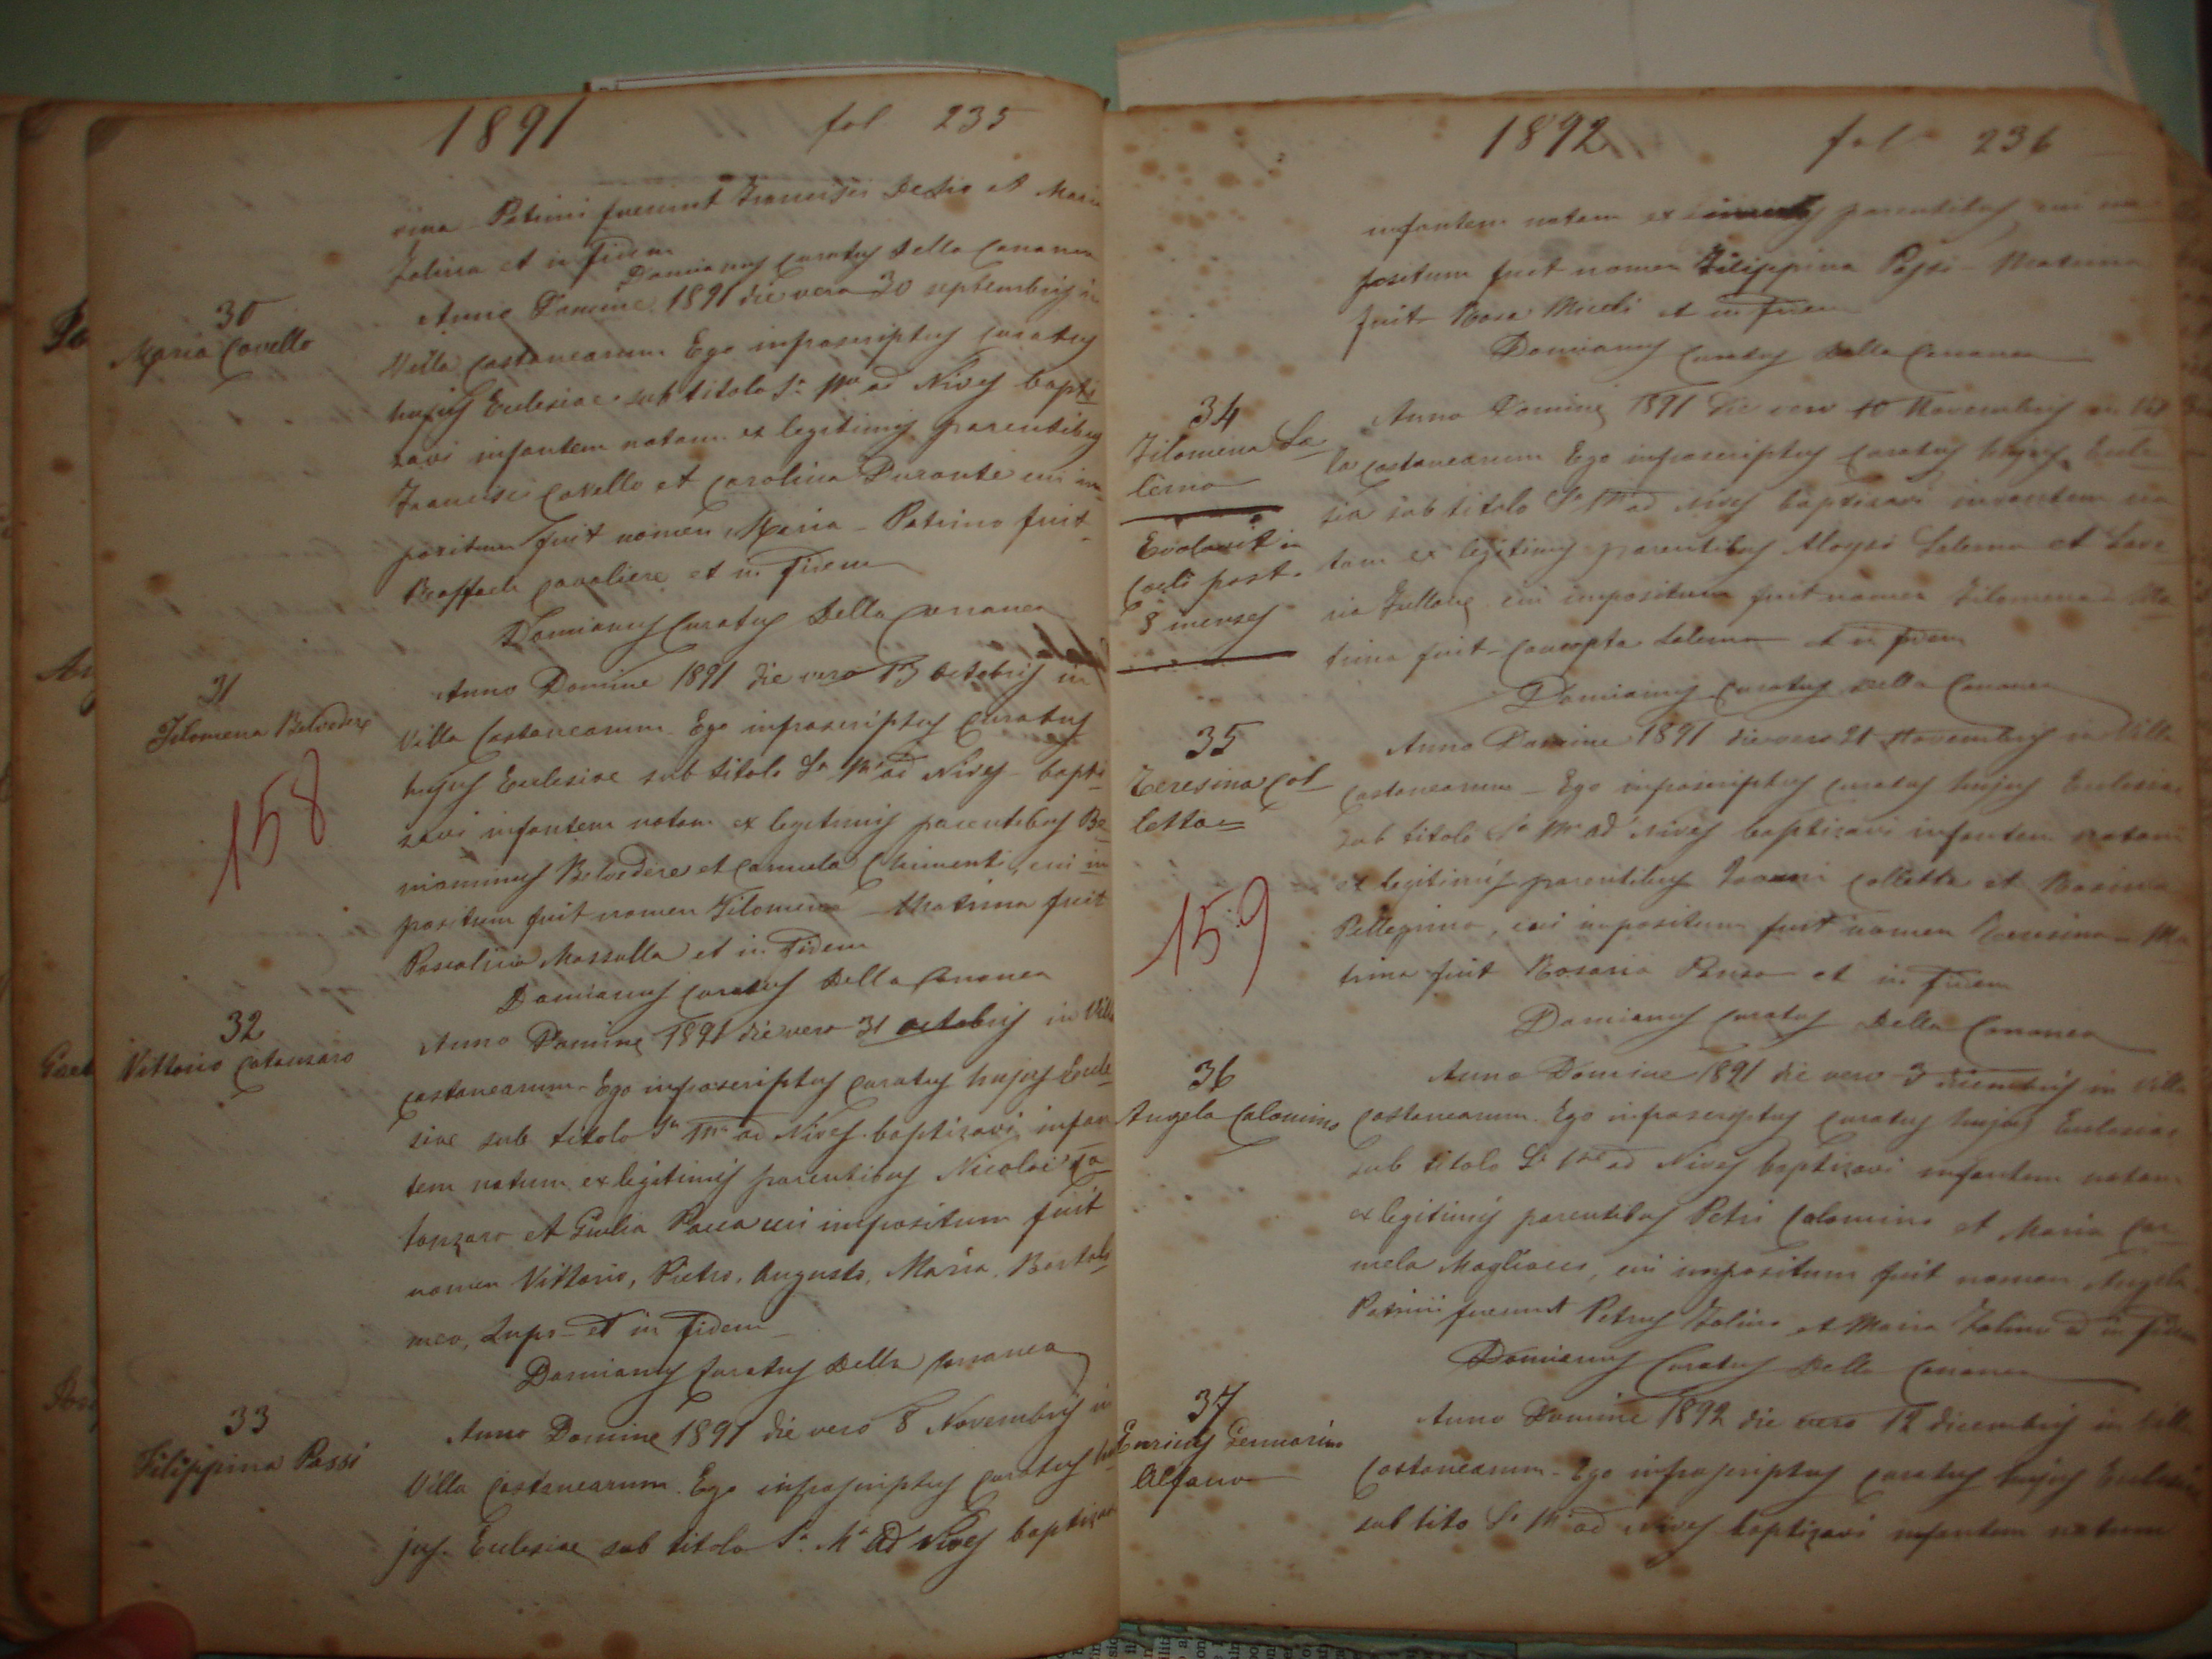 1891 fol 235
rina Patrini fuerunt Francisci De Lio et Maria
Zolina et in Fidem
Damianus Curatus Della Cananea
30
Maria Covello
Anno Domine 1891 die vero 30 septembris in
Villa Castanearum Ego infrascriptus Curatus
hujus Ecclesiae sub titolo Sa Ma ad Nives bapti
zavi infantem natam ex legitimis parentibus
Francisci Covello et Carolina Durante cui im
positum fuit nomen Maria - Patrino fuit
Raffaele Cavaliere et in Fidem
Damianus Curatus Della Cananea
31
Filomena Belvedere
158
Anno Domine 1891 die vero 13 octobris in
Villa Castanearum Ego infrascriptus Curatus
hujus Ecclesiae sub titolo Sa Ma ad Nives bapti
zavi infantem natam ex legitimis parentibus Be
niaminus Belvedere et Carmela Chimenti, cui im
positum fuit nomen Filomena - Matrina fuit
Pascalina Massulla et in Fidem
Damianus Curatus Della Cananea
32
Vittorio Catanzaro
Anno Domine 1891 die vero 31 octobris in Villa
Castanearum - Ego infrascriptus Curatus hujus Eccle
siae sub titolo Sa Ma ad Nives baptizavi infan
tem natum ex legitimis parentibus Nicolai Ca
tanzaro et Giulia Pacca cui impositum fuit
nomen Vittorio, Pietro, Augusto, Maria, Bartolo
meo, Lupo - et in Fidem
Damianus Curatus Della Cananea
33
Filippina Possi
Anno Domine 1891 die vero 8 Novembris in
Villa Castanearum. Ego infrascriptus Curatus hu
jus. Ecclesiae sub titolo Sa Ma ad Nives baptizavi
1892 fol 236
infantem natam ex parentibus cui im
positum fuit nomen Filippina Possi - Matrina
fuit Rosa Miceli et in Fidem
Damianus Curatus Della Cananea
34
Filomena Sa
lerno
Evolavit in
Coeli post
8 menses
Anno Domine 1891 die vero 10 Novembris in Vil
la Castanearum Ego infrascriptus Curatus hujus Eccle
sia sub titolo Sa Ma ad Nives baptizavi infantem na
tam ex legitimis parentibus Aloysi Salerno et
cui impositum fuit nomen Filomena - Ma
trina fuit Concepta Salerno et in Fidem
Damianus Curatus Della Cananea
35
Teresina Col
letta
159
Anno Domine 1891 die vero 21 Novembris in Villa
Castanearum - Ego infrascriptus Curatus hujus Ecclesiae
sub titolo Sa Ma ad Nives baptizavi infantem natam
ex legitimis parentibus Joanni Colletta et Rosina
Pellegrino, cui impositum fuit nomen Teresina - Ma
trina fuit Rosaria et in Fidem
Damianus Curatus Della Cananea
36
Angela Calomino
Anno Domine 1891 die vero 3 dicembris in Villa
Castanearum. Ego infrascriptus Curatus hujus Ecclesiae
sub titolo Sa Ma ad Nives baptizavi infantem natam
ex legitimis parentibus Petri Calomino et Maria Car
mela Magliocco, cui impositum fuit nomen Angela
Patrini fuerunt Petrus Zolino et Maria Zolino et in Fidem
Damianus Curatus Della Cananea
37
Enricus Gennarino
Alfano
Anno Domine 1892 die vero 12 dicembris in Villa
Castanearum - Ego infrascriptus Curatus hujus Ecclesiae
sub tito Sa Ma ad Nives baptizavi infantem natum